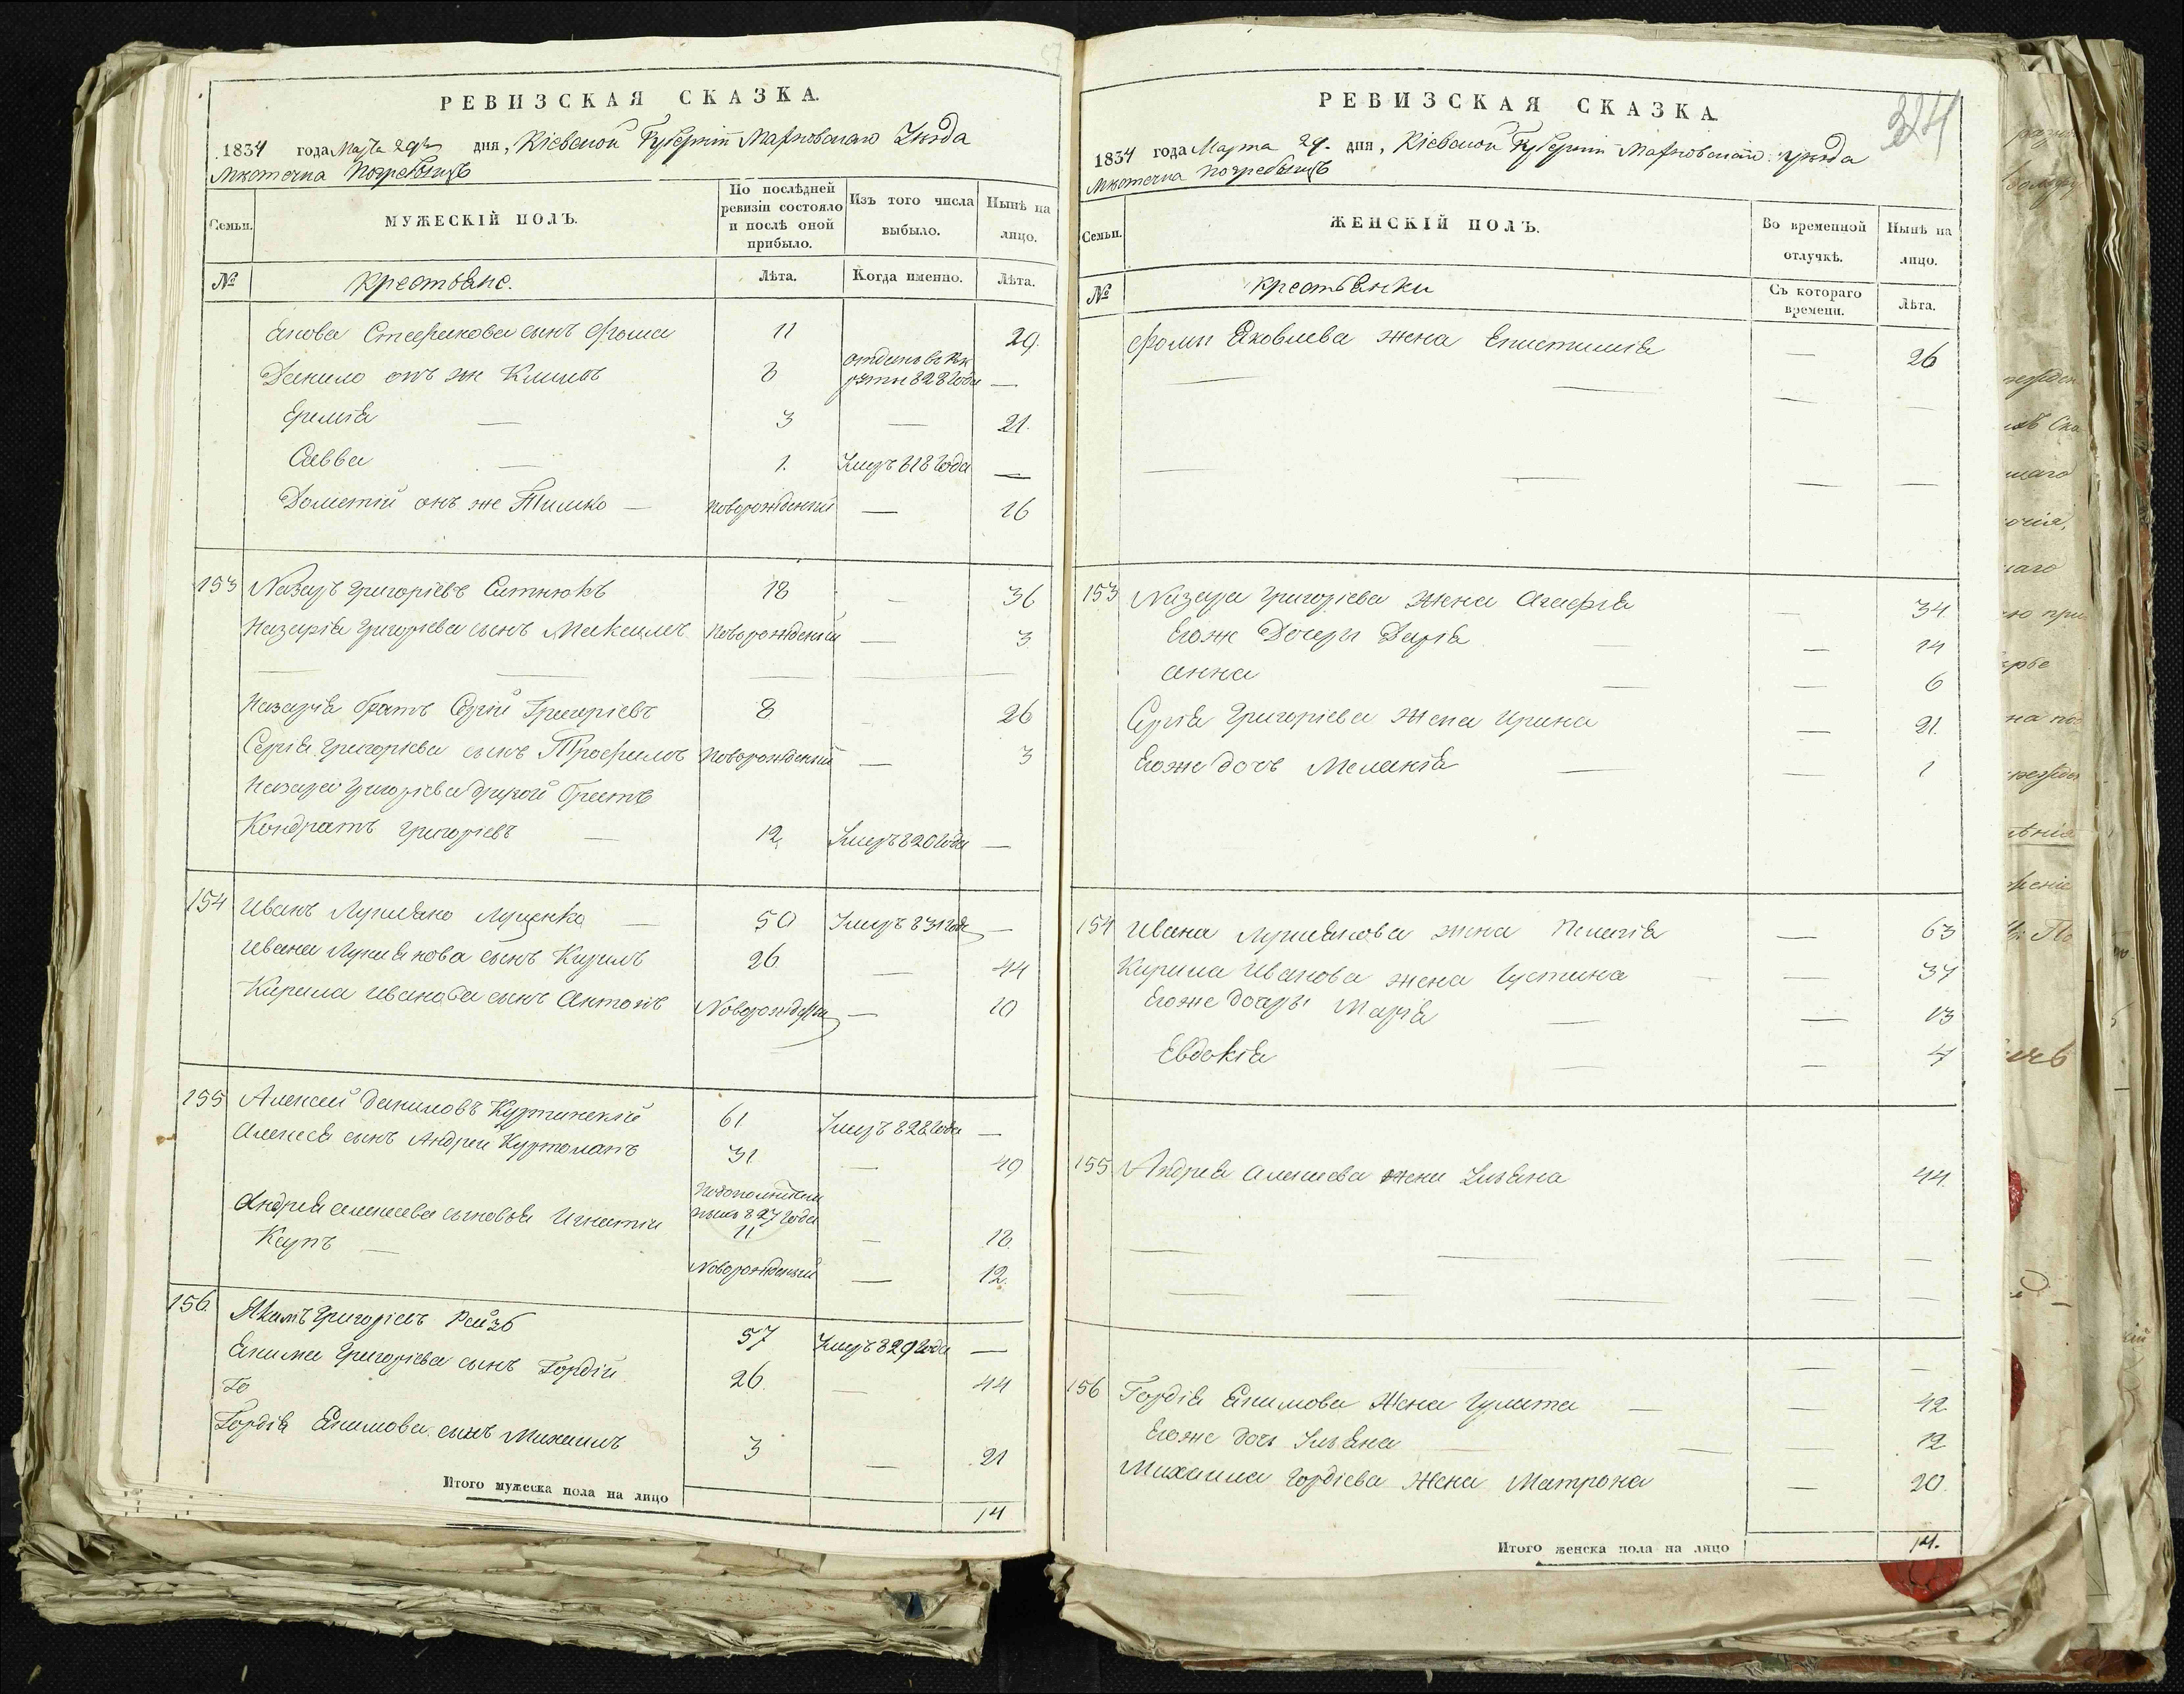 РЕВИЗСКАЯ СКАЗКА.
1834 года Марта 29го дня, Кіевской Губерніи Махновскаго Уезда
Мѣстечка Погребыщъ
Семьи.
МУЖЕСКІЙ ПОЛЪ.
По послѣдней ревизіи состояло и послѣ оной прибыло.
Изъ того числа выбыло.
Нынѣ на лицо.
№
Крестьяне.
Лѣта.
Когда именно.
Лѣта.
Якова Стефанова сынъ Фома 11 29.
Данило онъ же Климъ 8 отданъ въ рекруты 828 года —
Еремія — 3 — 21.
Савва — 1. Умеръ 818 года —
Дометій онъ же Тимко — новорожденный — 16
153 Назаръ Григоріевъ Ситнюкъ 18 — 36
Назарія Григоріева сынъ Максимъ Новорожденый — 3
Назарія братъ Сергій Григоріевъ 8 — 26
Сергія Григоріева сынъ Трофимъ Новорожденый — 3
Назарія Григоріева другой братъ
Кондратъ Григоріевъ — 12 Умеръ 820 года —
154 Иванъ Лукіяно Луценко — 50 Умеръ 831 года —
Ивана Лукіянова сынъ Кирилъ 26 — 44
Кирила Иванова сынъ Антонъ Новорожденый — 10
155 Алексей Даниловъ 61 Умеръ 828 года —
Алексея сынъ Андрей 31 — 49
Андрея Алексева сыновья Игнатій 827 года 11 — 18.
Карпъ — Новорожденый — 12.
156. Якимъ Григоріевъ 57 Умеръ 829 года —
Якима Григоріева сынъ Гордій 26. — 44
Го
Гордія Якимова сынъ Михаилъ 3 — 21
Итого мужеска пола на лицо 14
РЕВИЗСКАЯ СКАЗКА.
324
1834 года Марта 29. дня, Кіевской Губерніи Махновскаго уезда
Мѣстечка Погребыщъ
Семьи.
ЖЕНСКІЙ ПОЛЪ.
Во временной отлучкѣ.
Нынѣ на лицо.
№
Крестьянки
Съ котораго времени.
Лѣта.
Фомы Яковлева жена Епистимія — 26
153 Назара Григоріева жена Агафія — 34
Егоже Дочери Дарія — 14
Анна — 6
Сергія Григоріева жена Ирина — 21.
Егоже дочь Меланія — 1
154 Ивана Лукіянова жена Пелагія — 63
Кирила Иванова жена Іустина — 37
Егоже дочери Марія — 13
Евдокія — 4
155 Андрея Алексеева жена Уліяна 44.
156 Гордія Якимова жена Іулита — 42
Егоже дочь Ульяна — 12
Михаила Гордіева жена Матрона — 20.
Итого женска пола на лицо 14.